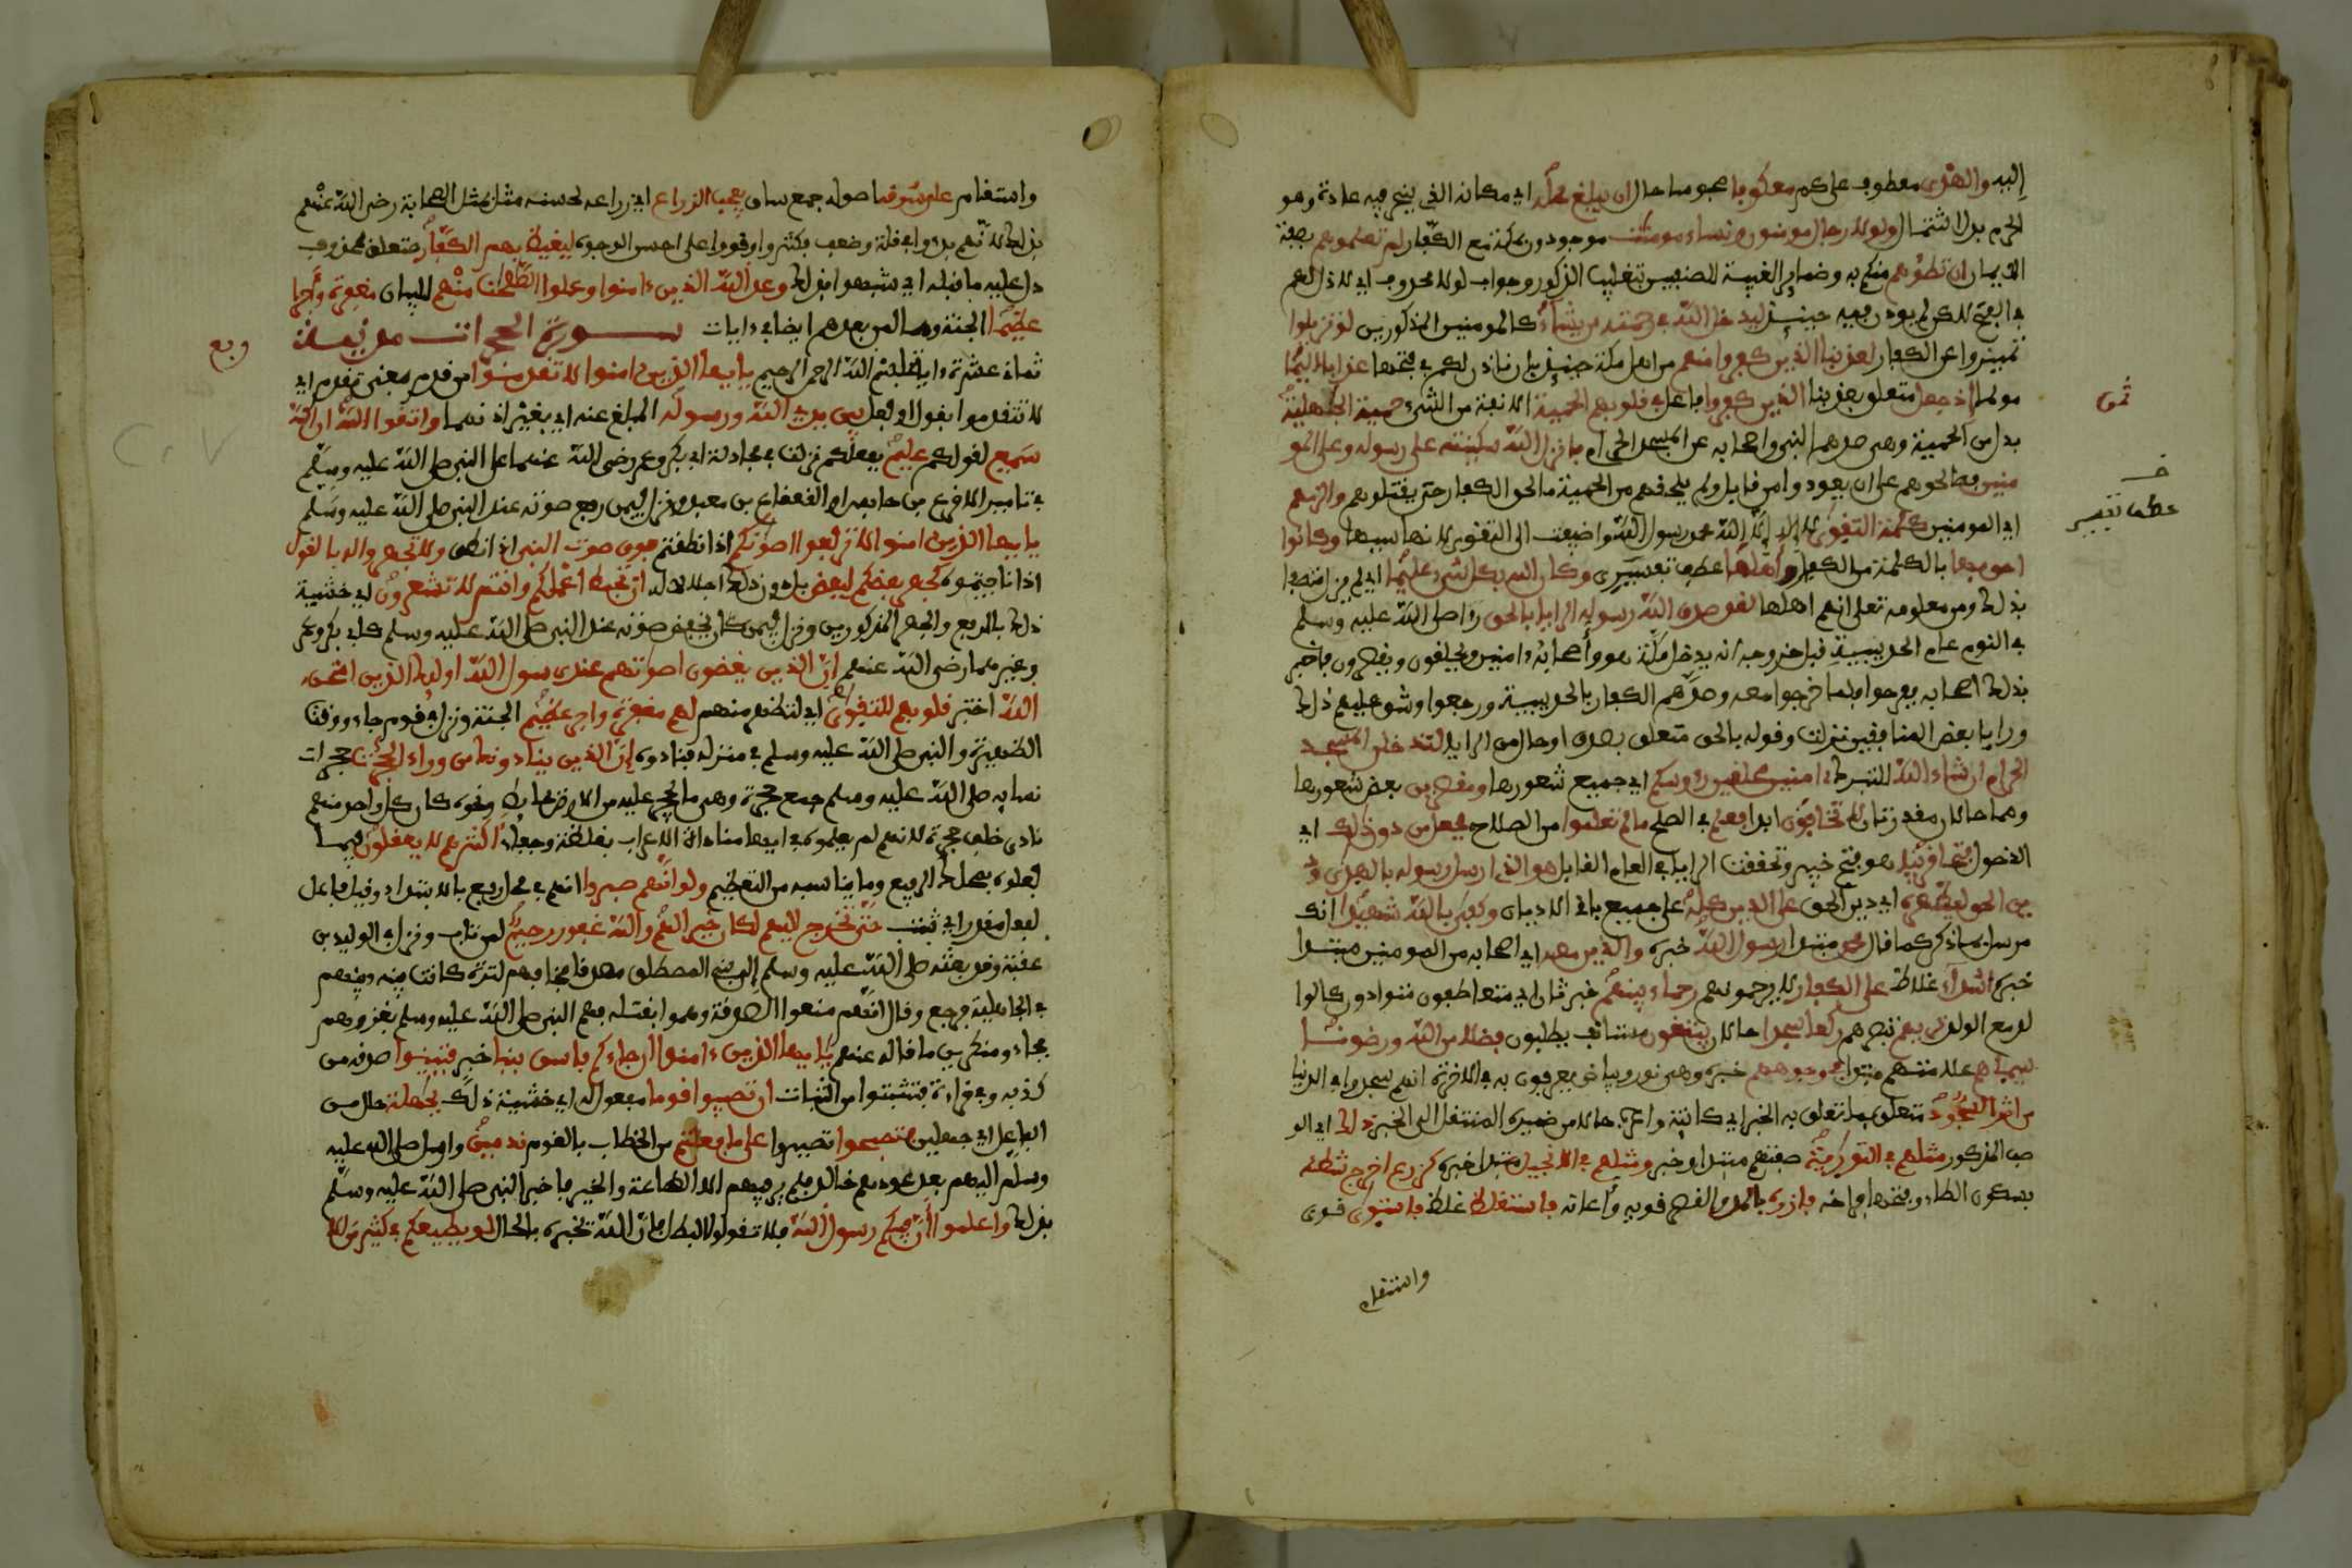 إليه والهدى معطوف على كم معكوفا محبوسا حال ان يبلغ محله اي مكانه الذي ينحر فيه عادة وهو
الحرم بدل اشتمال ولولا رجال مومنون ونساء مومنت موجودون بمكة مع الكفار لم تعلموهم بصفة
الايمان ان تطئوهم منكم به وضماير الغيبة للصنفين بتغليب الذكور وجواب لولا محذوف اي لاذن لكم
في الفتح لكن لم يوذن فيه حينيذ ليدخل الله في رحمته من يشاء كالمومنين المذكورين لو تزيلوا
تميزوا عن الكفار لعذبنا الذين كفروا منهم من اهل مكة حينيذ بان ناذن لكم في فتحها عذابا اليما
مولما إذ جعل متعلق بعذبنا الذين كفروا فاعل في قلوبهم الحمية الانفة من الشيء حمية الجهلية
بدل من الحمية وهي صدهم النبي واصحابه عن المسجد الحرام فانزل الله سكينته على رسوله وعلى المو
منين فصالحوهم على ان يعودوا من قابل ولم يلحقهم من الحمية ما لحق الكفار حتى يقتلوهم والزمهم
اي المومنين كلمة التقوى لا إله إلا الله محمد رسول الله واضيفت الى التقوى لانها سببها وكانوا
احق بها بالكلمة من الكفار وأهلها عطف تفسيرى وكان الله بكل شيء عليما اي لم يزل متصفا
بذلك ومن معلومه تعلى انهم اهلها لقد صدق الله رسوله الرايا بالحق رءا صلى الله عليه وسلم
في النوم عام الحديبية قبل خروجه انه يدخل مكة هو وأصحابه ءامنين ويحلقون ويقصرون فاخبر
بذلك اصحابه ففرحوا فلما خرجوا معه وصدهم الكفار بالحديبية ورجعوا وشق عليهم ذلك
وراب بعض المنافقين نزلت وقوله بالحق متعلق بصدق او حال من الرايا لتدخلن المسجد
الحرام ان شاء الله للتبرك ءامنين محلقين رءوسكم اي جميع شعورها ومقصرين بعض شعورها
وهما حالان مقدرتان لا تخافون ابدا فعلم في الصلح ما لم تعلموا من الصلاح فجعل من دون ذلك اي
الدخول فتحا قريبا هو فتح خيبر وتحققت الرايا في العام القابل هو الذي ارسل رسوله بالهدى ود
ين الحق ليظهره اي دين الحق على الدين كله على جميع باقي الاديان وكفى بالله شهيدا انك
مرسل بما ذكر كما قال محمد مبتدا رسول الله خبره والذين معه اي اصحابه من المومنين مبتدا
خبره أشداء غلاظ على الكفار لا يرحمونهم رحماء بينهم خبر ثان اي متعاطفون متوادون كالوا
لد مع الولد تريهم تبصرهم ركعا سجدا حالان يبتغون مستانف يطلبون فضلا من الله ورضونا
سيماهم علامتهم مبتدا في وجوههم خبره وهي نور وبياض يعرفون به في الاخرة انهم سجدوا في الدنيا
من اثر السجود متعلق بما تعلق به الخبر اي كاينة واعرب حالا من ضميره المنتقل الى الخبر ذلك اي الو
صف المذكور مثلهم في التورية صفتهم مبتدا وخبر ومثلهم في الانجيل مبتدا خبره كزرع اخرج شطئه
بسكون الطاء وفتحها فراخه فازره بالمد والقصر قويه وأعانه فاستغلظ غلظ فاستوى قوى
واستقام
ثمن
عطف تفسير
واستقام على سوقه اصوله جمع ساق يعجب الزراع اي زراعه لحسنه مثل مثل الصحابة رضي الله عنهم
بذلك لانهم بدوا في قلة وضعف فكثروا وقووا على احسن الوجوه ليغيظ بهم الكفار متعلق بمحذوف
دل عليه ما قبله اي شبهوا بذلك وعد الله الذين ءامنوا وعملوا الصلحت منهم للبيان مغفرة وأجرا
عظيما الجنة وهما لمن بعدهم ايضا في ءايات سورة الحجرات مدنية
ثمان عشرة ءاية بسم الله الرحمن الرحيم يايها الذين ءامنوا لا تقدموا من قدم بمعنى تقدم اي
لا تتقدموا بقول او فعل بين يدي الله ورسوله المبلغ عنه اي بغير اذنهما واتقوا الله ان الله
سميع لقولكم عليم بفعلكم نزلت في مجادلة ابي بكر وعمر رضي الله عنهما على النبي صلى الله عليه وسلم
في تامير الاقرع بن حابس او القعقاع بن معبد ونزل فيمن رفع صوته عند النبي صلى الله عليه وسلم
يايها الذين امنوا لا ترفعوا اصوتكم اذا نطقتم فوق صوت النبي اذا نطق ولا تجهروا له بالقول
اذا ناجيتموه كجهر بعضكم لبعض بل دون ذلك اجلالا له ان تحبط اعملكم وانتم لا تشعرون اي خشية
ذلك بالرفع والجهر المذكورين ونزل فيمن كان يخفض صوته عند النبي صلى الله عليه وسلم كابي بكر وعمر
وغيرهما رضي الله عنهم إن الذين يغضون اصوتهم عند رسول الله اوليك الذين امتحن
الله اختبر قلوبهم للتقوى اي لتظهر منهم لهم مغفرة واجر عظيم الجنة ونزل في قوم جاءوا وقت
الظهيرة والنبي صلى الله عليه وسلم في منزله فنادوه إن الذين ينادونك من وراء الحجرت حجرات
نسايه صلى الله عليه وسلم جمع حجرة وهي ما يحجر عليه من الارض بحايط ونحوه كان كل واحد منهم
نادى خلف حجرة لانهم لم يعلموه في ايها مناداة الاعراب بغلظة وجفاء أكثرهم لا يعقلون فيما
فعلوه بمحلك الرفيع وما يناسبه من التعظيم ولو انهم صبروا انهم في محل رفع بالابتداء وقيل فاعل
لفعل مقدر اي ثبت حتى تخرج اليهم لكان خيرا لهم والله غفور رحيم لمن تاب ونزل في الوليد بن
عقبة وقد بعثه صلى الله عليه وسلم إلى بني المصطلق مصدقا فخافهم لترة كانت بينه وبينهم
في الجاهلية فرجع وقال انهم منعوا الصدقة وهموا بقتله فهم النبي صلى الله عليه وسلم بغزوهم
فجاءوا منكرين ما قاله عنهم يايها الذين ءامنوا ان جاءكم فاسق بنبا خبر فتبينوا صدقه من
كذبه وفي قراءة فتثبتوا من الثبات ان تصيبوا قوما مفعول له اي خشية ذلك بجهلة حال من
الفاعل اي جاهلين فتصبحوا تصيروا على ما فعلتم من الخطاب بالقوم ندمين وارسل صلى الله عليه
وسلم اليهم بعد عودهم خالدا فلم ير فيهم الا الطاعة والخير فاخبر النبي صلى الله عليه وسلم
بذلك واعلموا أن فيكم رسول الله فلا تقولوا الباطل فان الله يخبره بالحال لو يطيعكم في كثير من الا
ربع